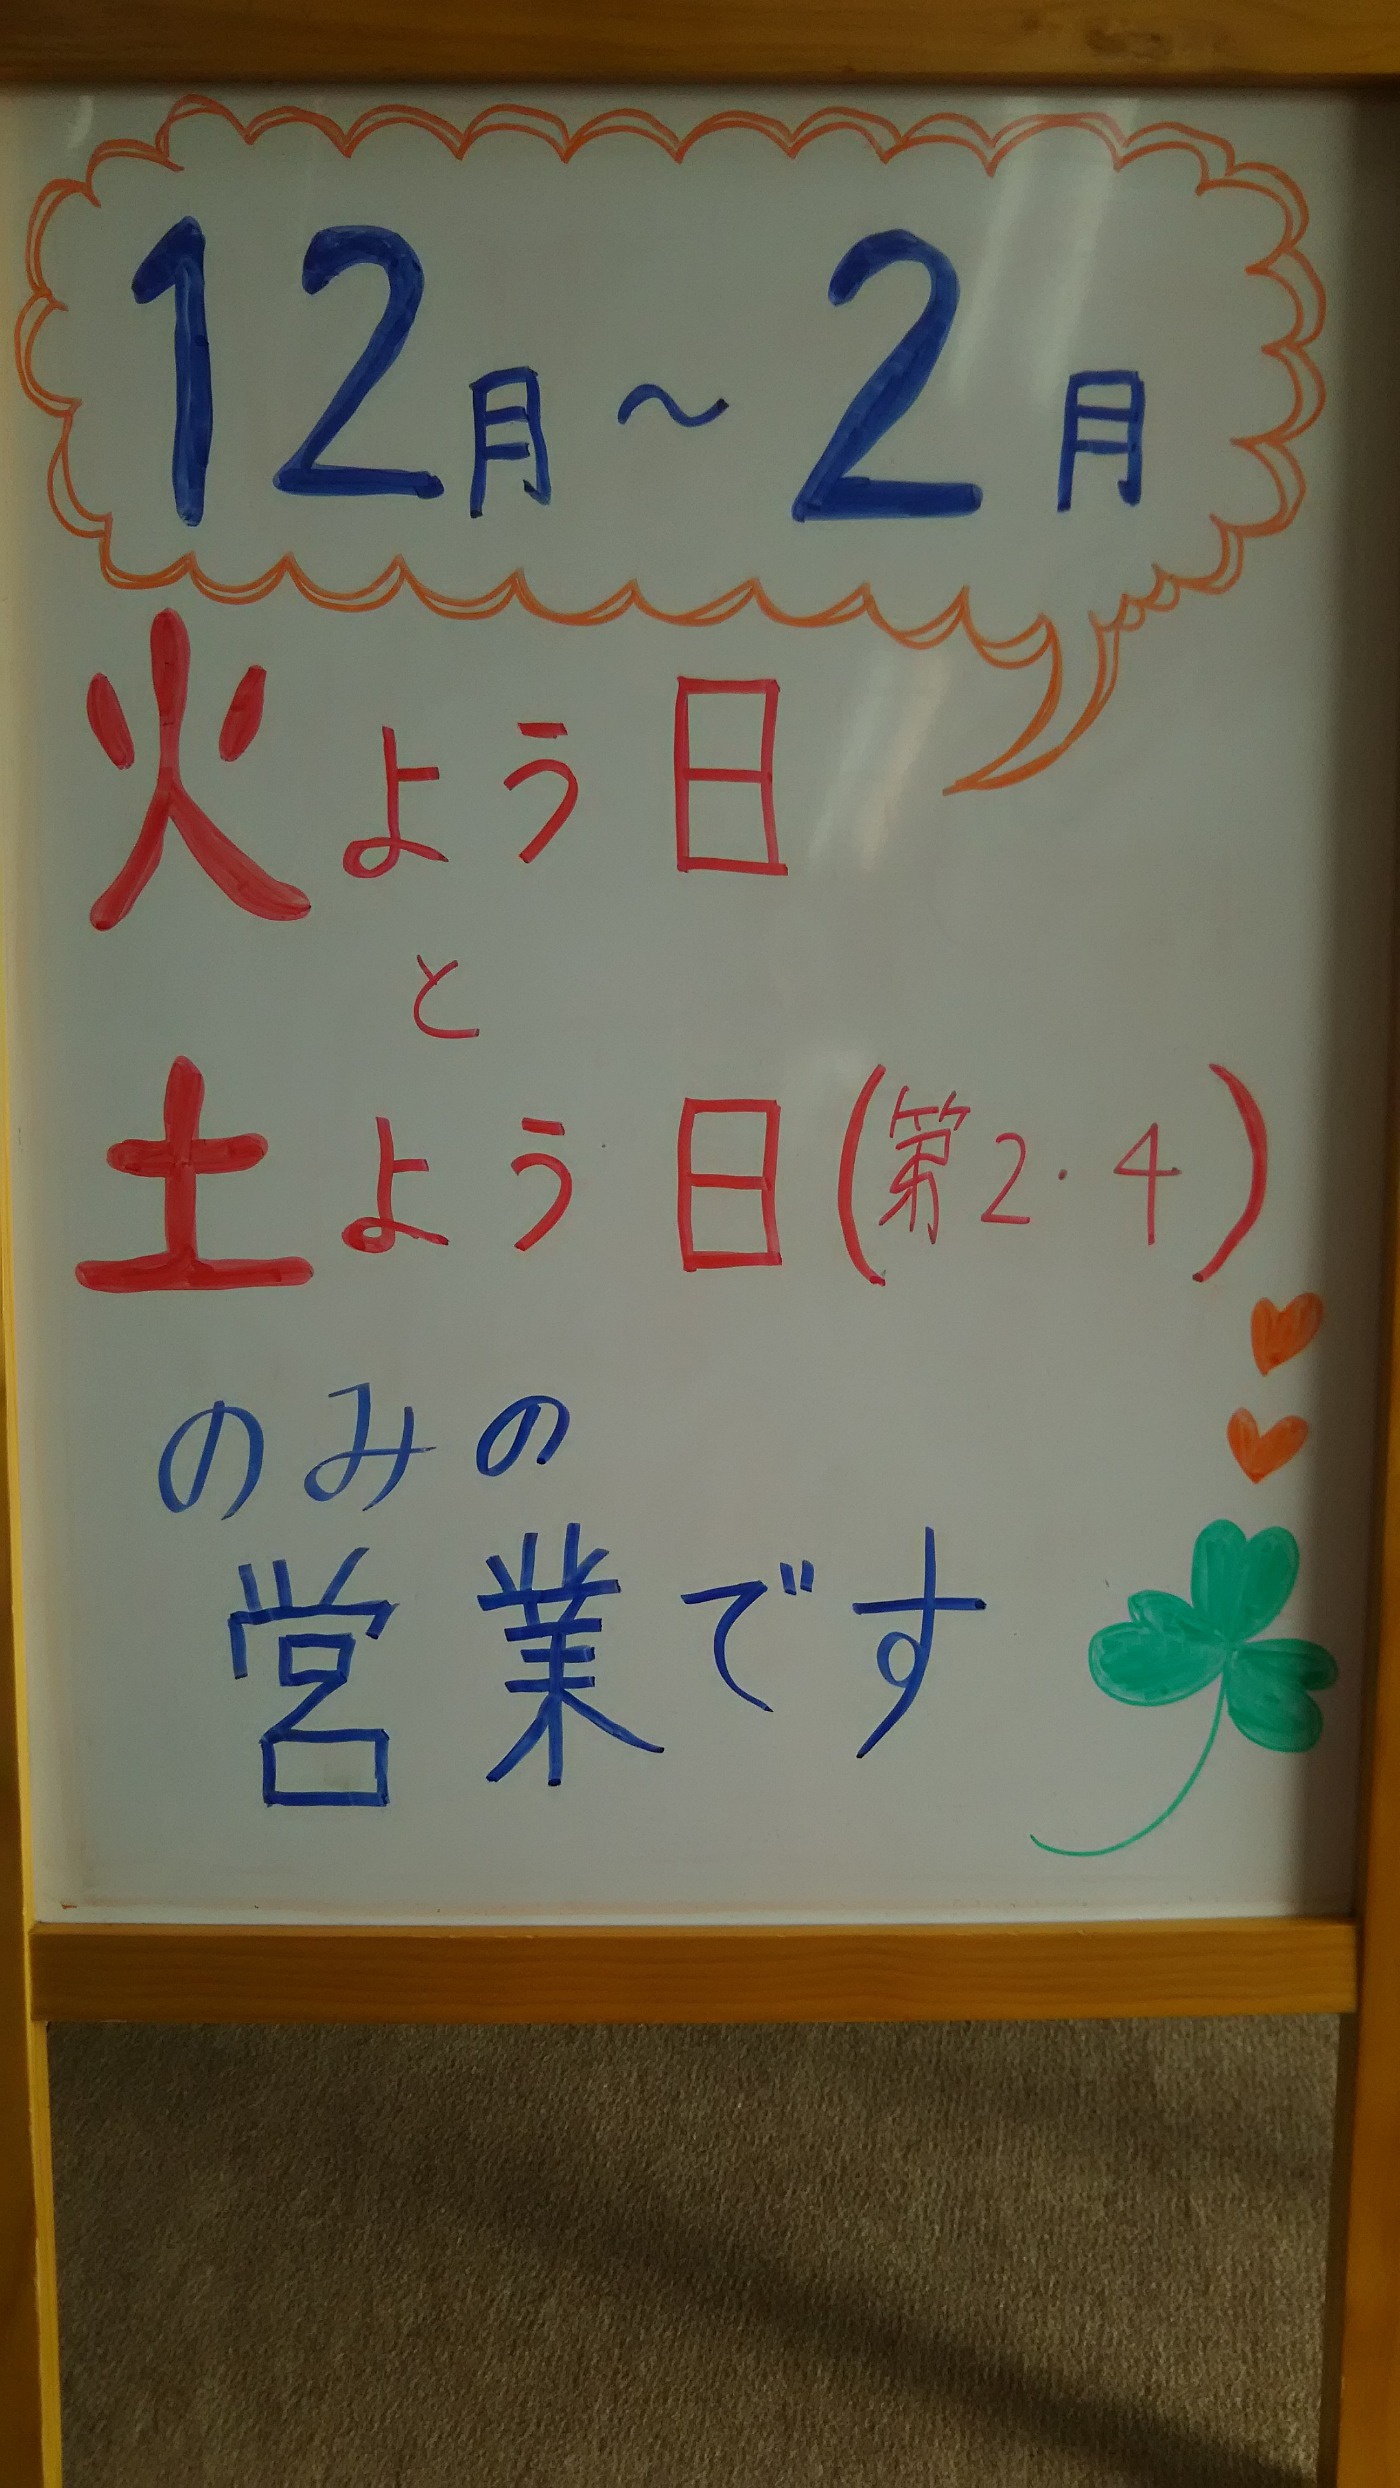 12月～2月
火よう日
と
土よう日(第2・4)
のみの
営業です